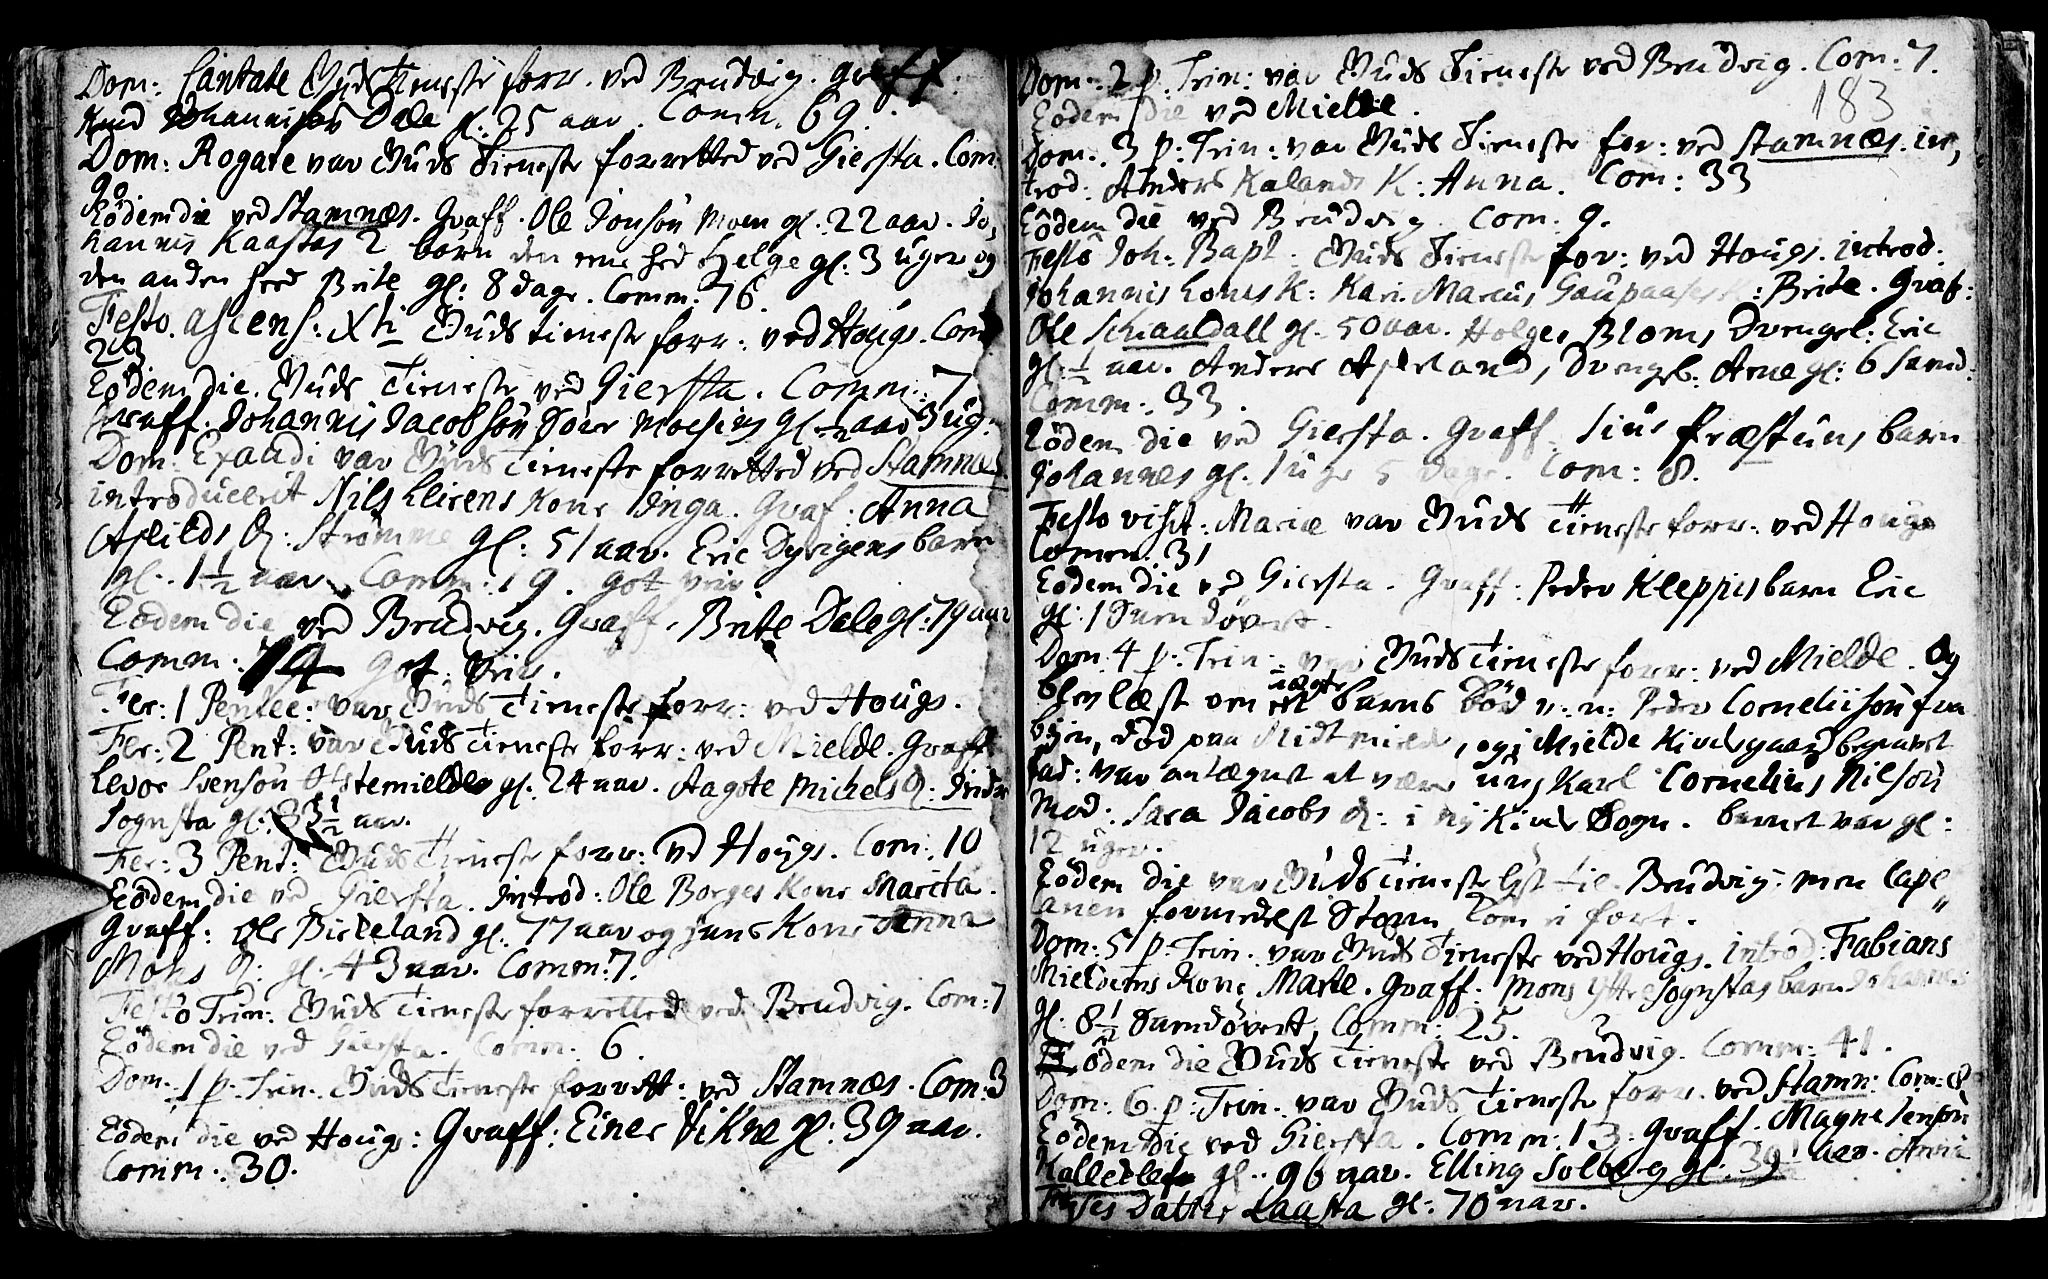 Dom: Cantate Guds tieneste forr. ved Brudvig. graff.
Knud Johannisön Dale gl: 25 aar. Comm. 69.
Dom: Rogate var Guds Tieneste forretted ved Giersta. Com:
90
Eödem die ved Stamnæs. Graff. Ole Jonsön Moen gl. 22 aar. Jo,
hannis Kaastas 2 börn den ene hed Helge gl: 3 uger og
den anden hed Brite gl: 8 dage. Comm: 76.
Festo ascens: Xti Guds tieneste forr: ved Hougs. Com
23
Eödem die. Guds Tieneste ved Giersta. Comm: 7
Graff. Johannis Jacobsön gl ½ aar 3 ug:
Dom: Exaudi var Guds Tieneste forretted ved Stamnes
introducerit Nils kone Inga. Graf. Anna
D: Strömme gl: 51 aar. Eric Dyvigens barn
gl. 1½ aar. Comm: 19.
Eödem die ved Brudvig. Graff. Brite Dale gl: 79 aar
Comm: 14
Fer: 1 Pentec: var Guds Tieneste forr: ved Hougs.
Fer: 2 Pent: var Guds Tieneste forr: ved Mielde. Graff
Levor Svensön gl. 24 aar. Aagote Michels D:
Sognsta gl: 83½ aar.
Fer: 3 Pent: Guds Tieneste forr: ved Hougs. Com: 10
Eödem die ved Giersta. Introd: Ole Borges Kone Marita.
Graff: Ole Birkeland gl. 77 aar og hans Kone Anna
Mons D: gl. 43 aar. Comm: 7.
Festo Trin: Guds Tieneste forretted ved Brudvig. Com: 7
Eödem die ved Giersta. Comm. 6.
Dom. 1 p. Trin. Guds Tieneste forrett: ved Stamnæs. Com: 3
Eödem die ved Hougs: Graff: Einer Vikne gl: 39 aar.
Comm: 30.
Dom: 2 p. Trin: var Guds Tieneste ved Brudvig. Com: 7.
183
Eodem die ved Mielde.
Dom. 3 p: Trin: var Guds Tieneste for: ved Stamnæs. in,
trod: Anders Kalands K: Anna. Com: 33
Eödem die ved Brudvig. Com. 9.
Festo Joh: Bapt: Guds Tieneste for: ved Hougs. introd:
Johannis K: Kari. Marcus Gaupaases K: Brite. Graf:
Ole Schaaldall gl. 50 aar. Holger Bloms Drengeb: Eric
gl. ½ aar. Anders Aperland, Drengeb. Arne gl: 6
Comm: 33.
Eödem die ved Giersta. Graff. Siur Præstuns barn
Johannes gl. 1 uge 5 dage. Com: 8.
Festo visit: Mariæ var Guds Tieneste forr: ved Hougs
Comm: 31
Eödem die ved Giersta. Graff: Peder Kleppes barn Eric
gl: 1
Dom. 4 p: Trin: var Guds Tieneste forr: ved Mielde. Og
blev læst over et uægte barns Peder Corneliisön fra
byen, död paa Midtmielde, og i Mielde Kirkegaard begravet
fad: var antegnet at være ung Karl Cornelius Nilsön
Mod: Sara Jacobs D: i Nij Kirke Sogn. barnet var gl:
12 uger.
Eödem die var Guds Tieneste lyst til Brudvig. men Capel,
lanen formedelst Storm Kom ei fort.
Dom: 5 p: Trin. var Guds Tieneste ved Hougs. introd: Fabians
Mieldems Kone Marte. Graff: Mons Yttre Sognstas barn Johannes
gl: 8½ Comm: 25.
Eödem die Guds Tieneste ved Brudvig. Comm: 41.
Dom: 6 p: Trin. var Guds Tieneste forr. ved Stamn: Com: 8
Eodem die ved Giersta. Comm: 13. Graff. Magne
gl. 96 aar. Elling Solberg gl. 39½ aar. Anna
Datter Kaasta gl: 70 aar.